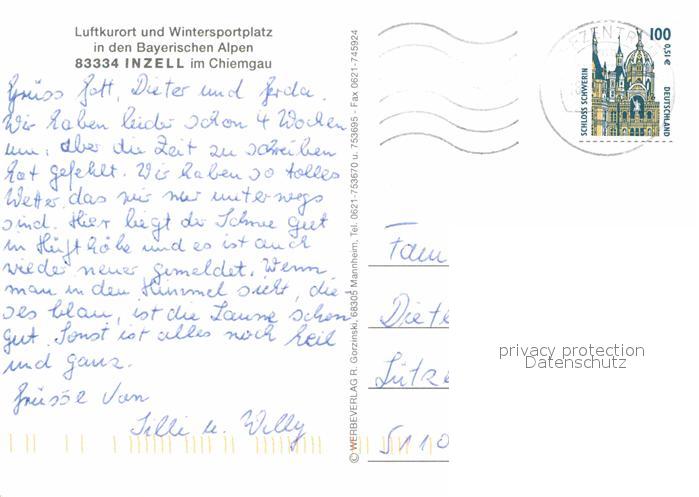 Luftkurort und Wintersportplatz
in den Bayerischen Alpen
83334 INZELL im Chiemgau
Grüss Gott, Dieter und Gerda.
Wir haben leider schon 4 Wochen
um, aber die Zeit zu schreiben
hat gefehlt. Wir haben so tolles
Wetter das wir nur unterwegs
sind. Hier liegt der Schnee gut
in Hüfthöhe und es ist auch
wieder neuer gemeldet. Wenn
man in den Himmel sieht, die-
ses blau, ist die Laune schon
gut. Sonst ist alles noch heil
und ganz.
Grüsse von
Silli u. Willy
© WERBEVERLAG R. Gorzinski, 68305 Mannheim, Tel. 0621-753670 u. 753695 - Fax 0621-745924
100
0,51 €
SCHLOSS SCHWERIN
DEUTSCHLAND
Fam
Diet
Lütze
5110
privacy protection
Datenschutz